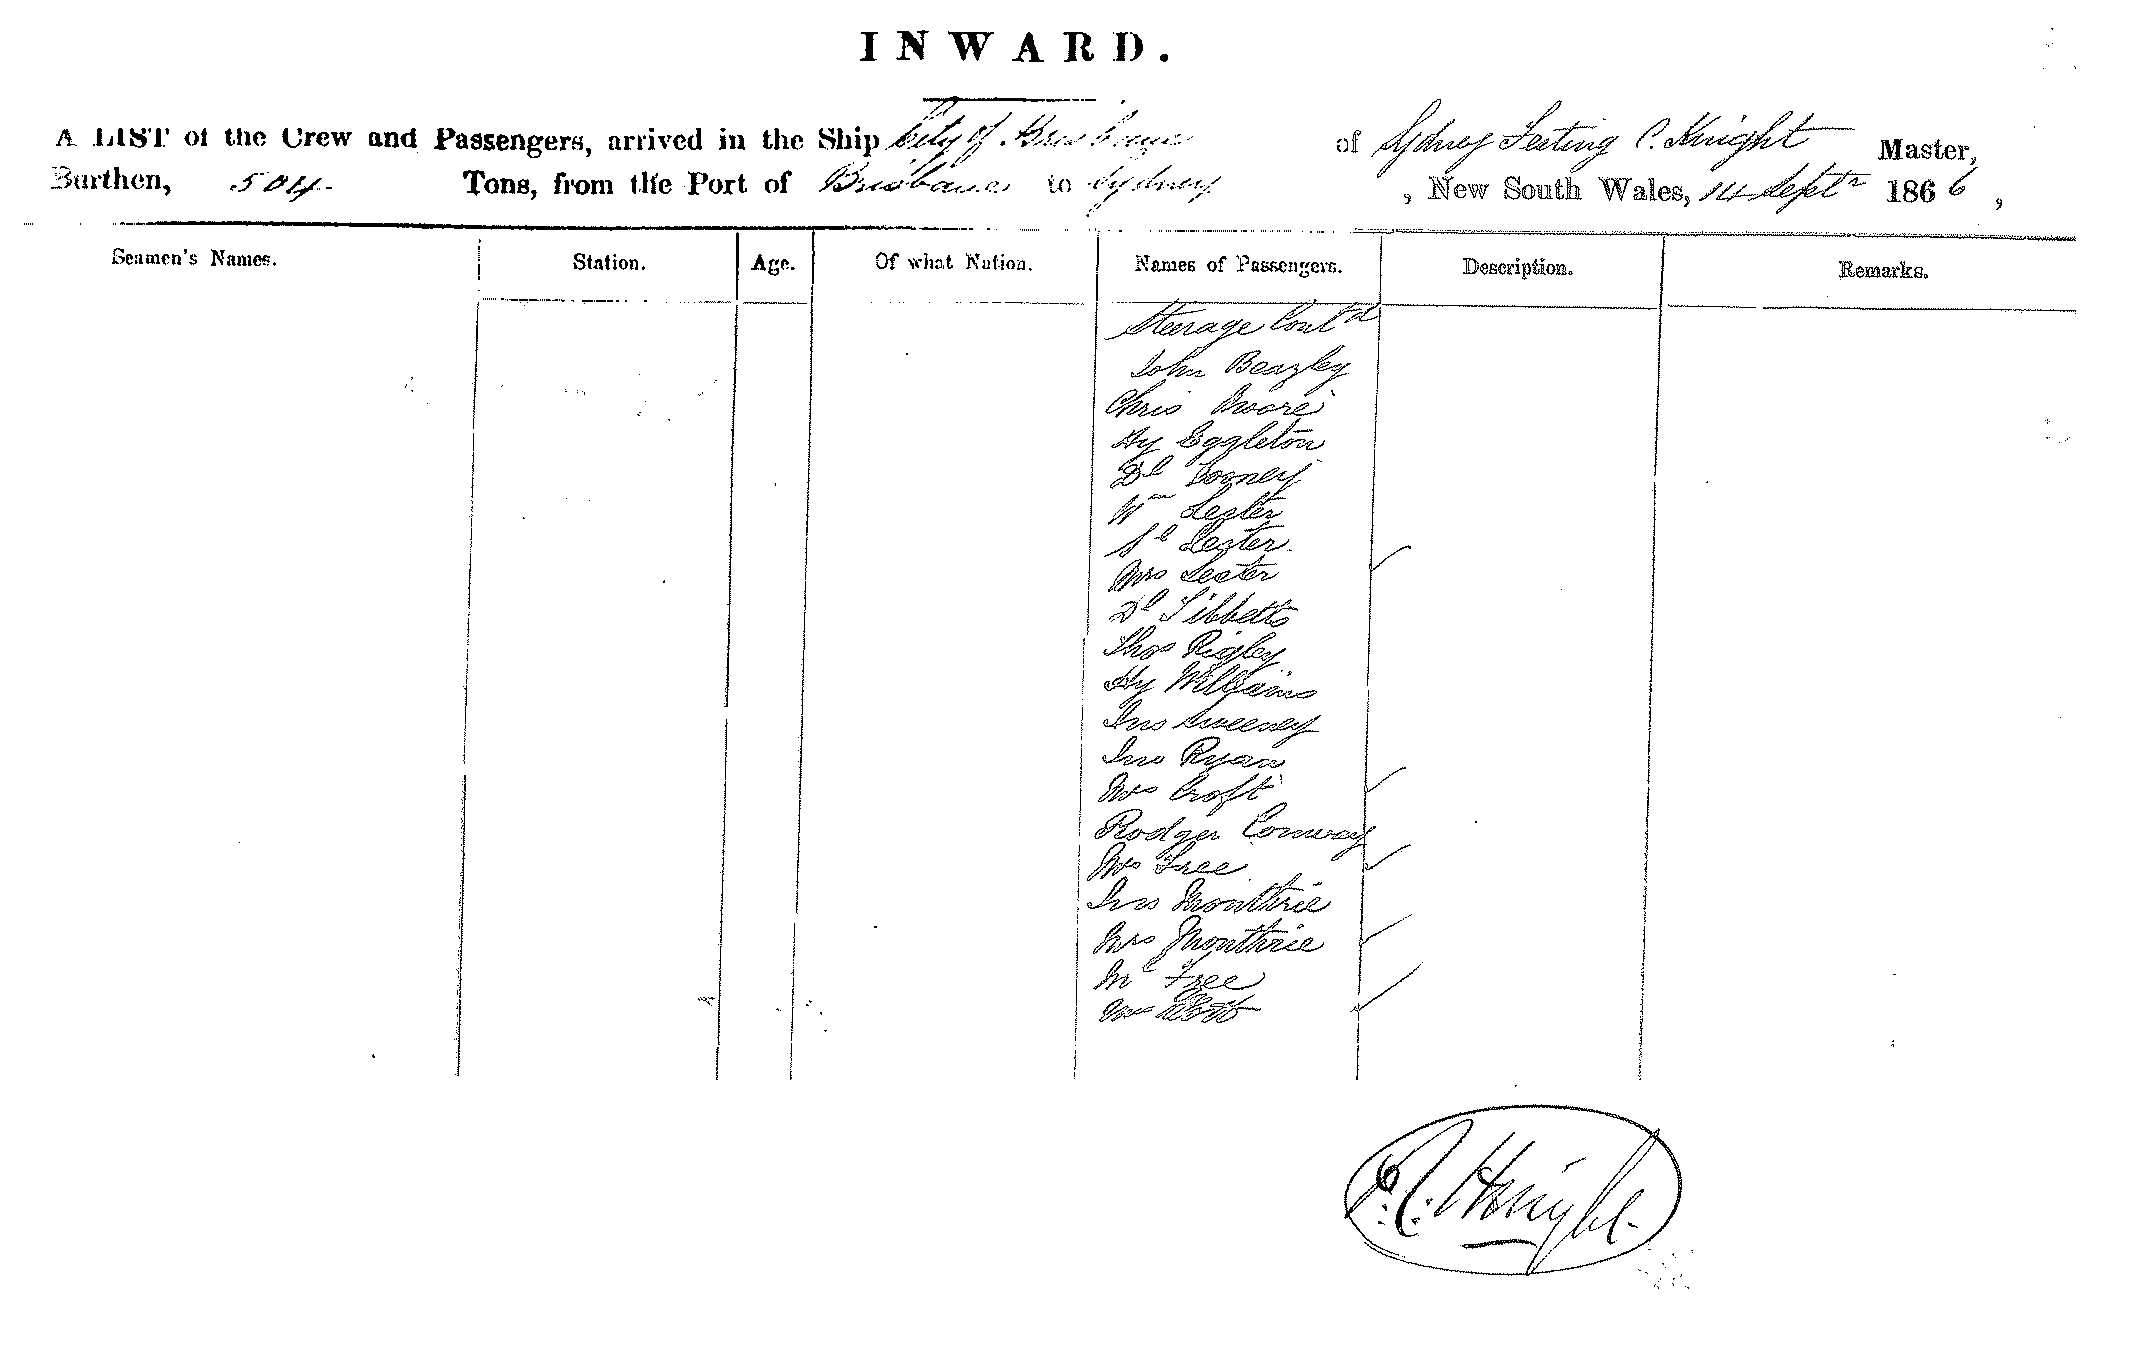 INWARD.
A LIST of the Crew and Passengers, arrived in the Ship City of Brisbane of Sydney C. Knight Master,
Burthen, 504 Tons, from the Port of Brisbane to Sydney, New South Wales, 14 Septr 1866,
Seamen's Names. Station. Age. Of what Nation. Names of Passengers. Description. Remarks.
Steerage Contd
John Beazley
Chris Moore
Hy Eggleton
Dl Cooney
Wm Lester
Sl Lester
Mrs Lester
Dl Tibbetts
Thos Rigley
Hy Williams
Jno Sweeney
Jno Ryan
Mrs Croft
Rodger Conway
Mrs Free
Jno Monthrie
Mrs Monthrie
Mr Free
Mrs
C. Knight